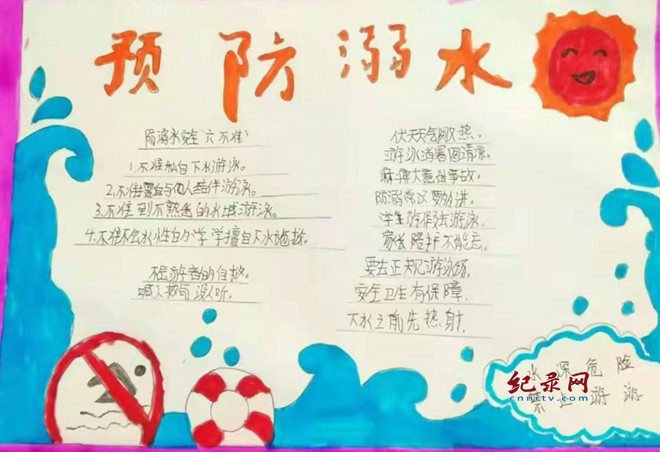 预防溺水
防溺水安全"六不准"
1.不准私自下水游泳。
2.不准擅自与他人结伴游泳。
3.不准到不熟悉的水域游泳。
4.不准不会水性的学擅自下水施救。
不
喊人救
伏天天气闷热。
游泳消暑图清凉。
麻痹大意出事故。
防溺常识要
学生
家长陪护不能忘。
要去正规游泳场。
安全卫生有保障。
下水之前先热身.
水深危险
禁止游泳
纪录网
cnrctv.com